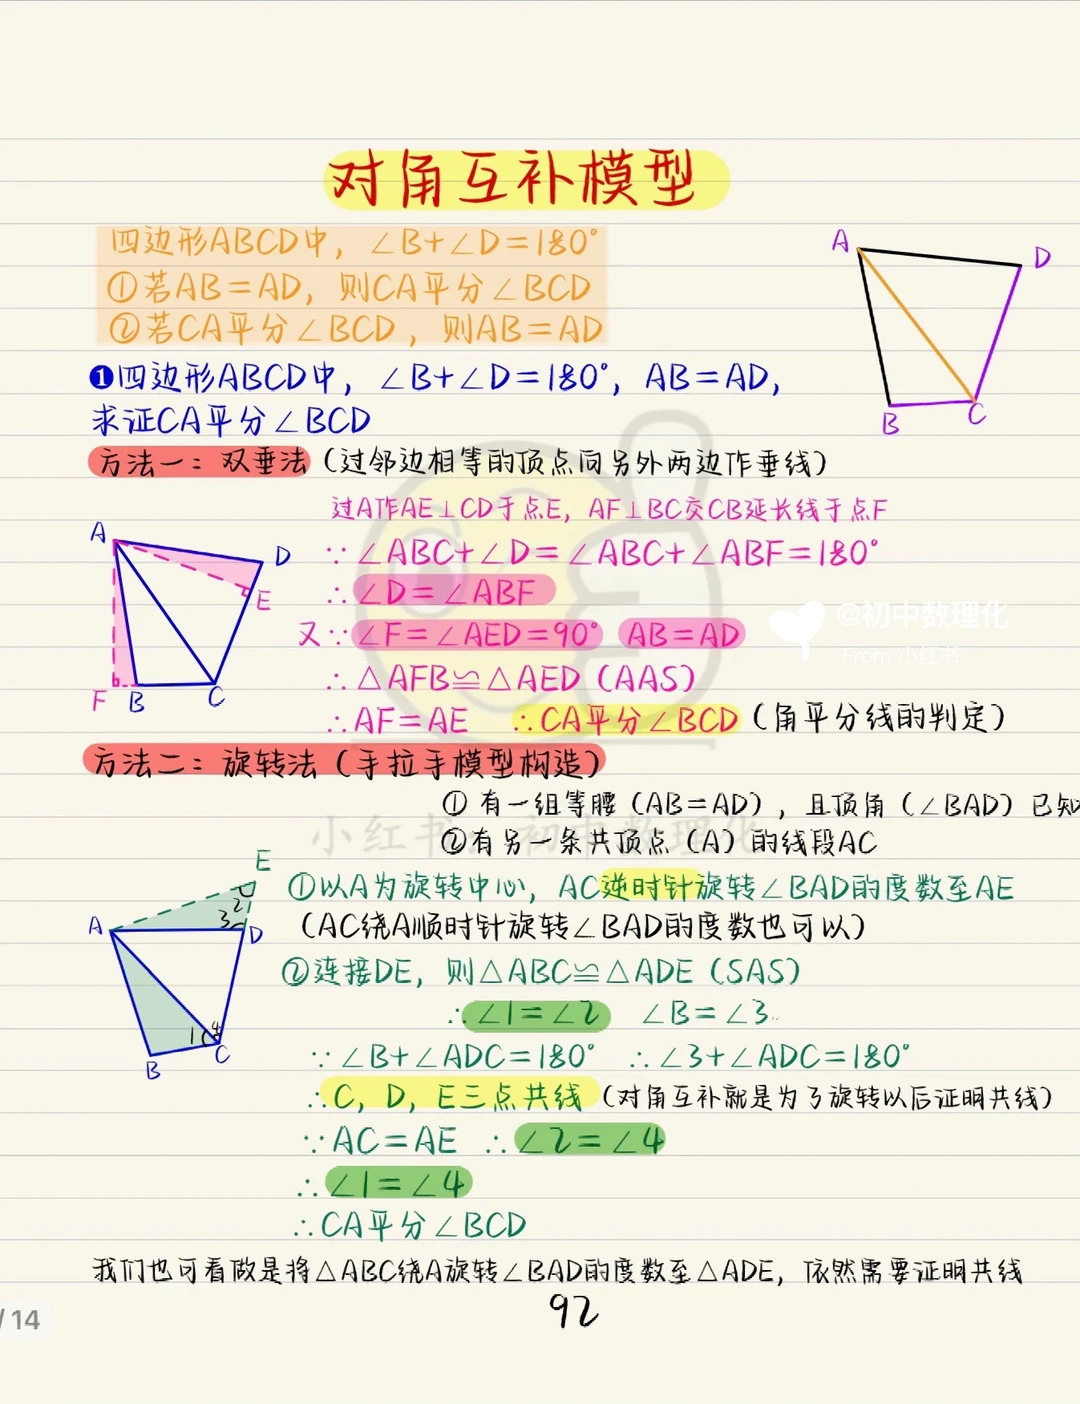 对角互补模型
四边形ABCD中，∠B+∠D=180°
①若AB=AD，则CA平分∠BCD
②若CA平分∠BCD，则AB=AD
A
D
B
C
❶四边形ABCD中，∠B+∠D=180°，AB=AD，
求证CA平分∠BCD
方法一：双垂法（过邻边相等的顶点向另外两边作垂线）
过A作AE⊥CD于点E，AF⊥BC交CB延长线于点F
A
D
E
F
B
C
∵∠ABC+∠D=∠ABC+∠ABF=180°
∴∠D=∠ABF
又∵∠F=∠AED=90° AB=AD
@初中数理化
From 小红书
∴△AFB≌△AED（AAS）
∴AF=AE ∴CA平分∠BCD（角平分线的判定）
方法二：旋转法（手拉手模型构造）
①有一组等腰（AB=AD），且顶角（∠BAD）已知
②有另一条共顶点（A）的线段AC
小红书：初中数理化
E
2
A
3
D
1
4
C
B
①以A为旋转中心，AC逆时针旋转∠BAD的度数至AE
（AC绕A顺时针旋转∠BAD的度数也可以）
②连接DE，则△ABC≌△ADE（SAS）
∴∠1=∠2 ∠B=∠3
∵∠B+∠ADC=180° ∴∠3+∠ADC=180°
∴C，D，E三点共线（对角互补就是为了旋转以后证明共线）
∵AC=AE ∴∠2=∠4
∴∠1=∠4
∴CA平分∠BCD
我们也可看做是将△ABC绕A旋转∠BAD的度数至△ADE，依然需要证明共线
92
/14